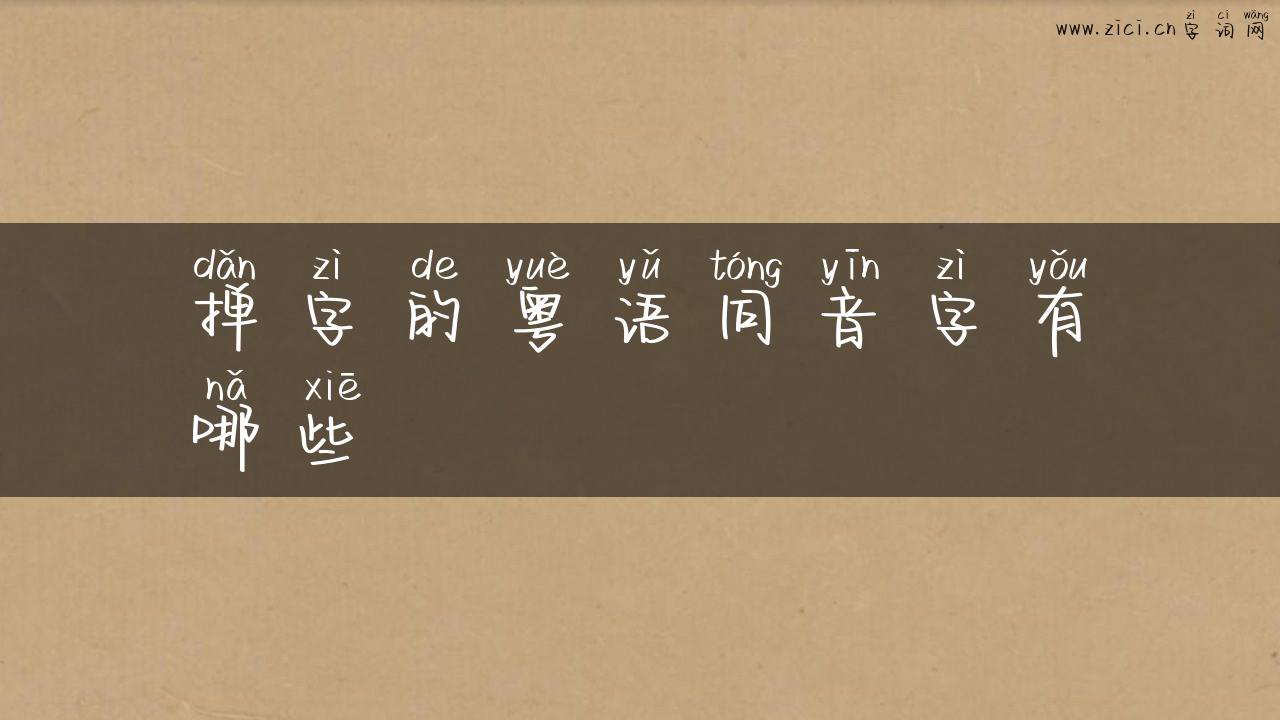 zì cí wǎng
www.zici.cn 字词网
dǎn zì de yuè yǔ tóng yīn zì yǒu
掸字的粤语同音字有
nǎ xiē
哪些